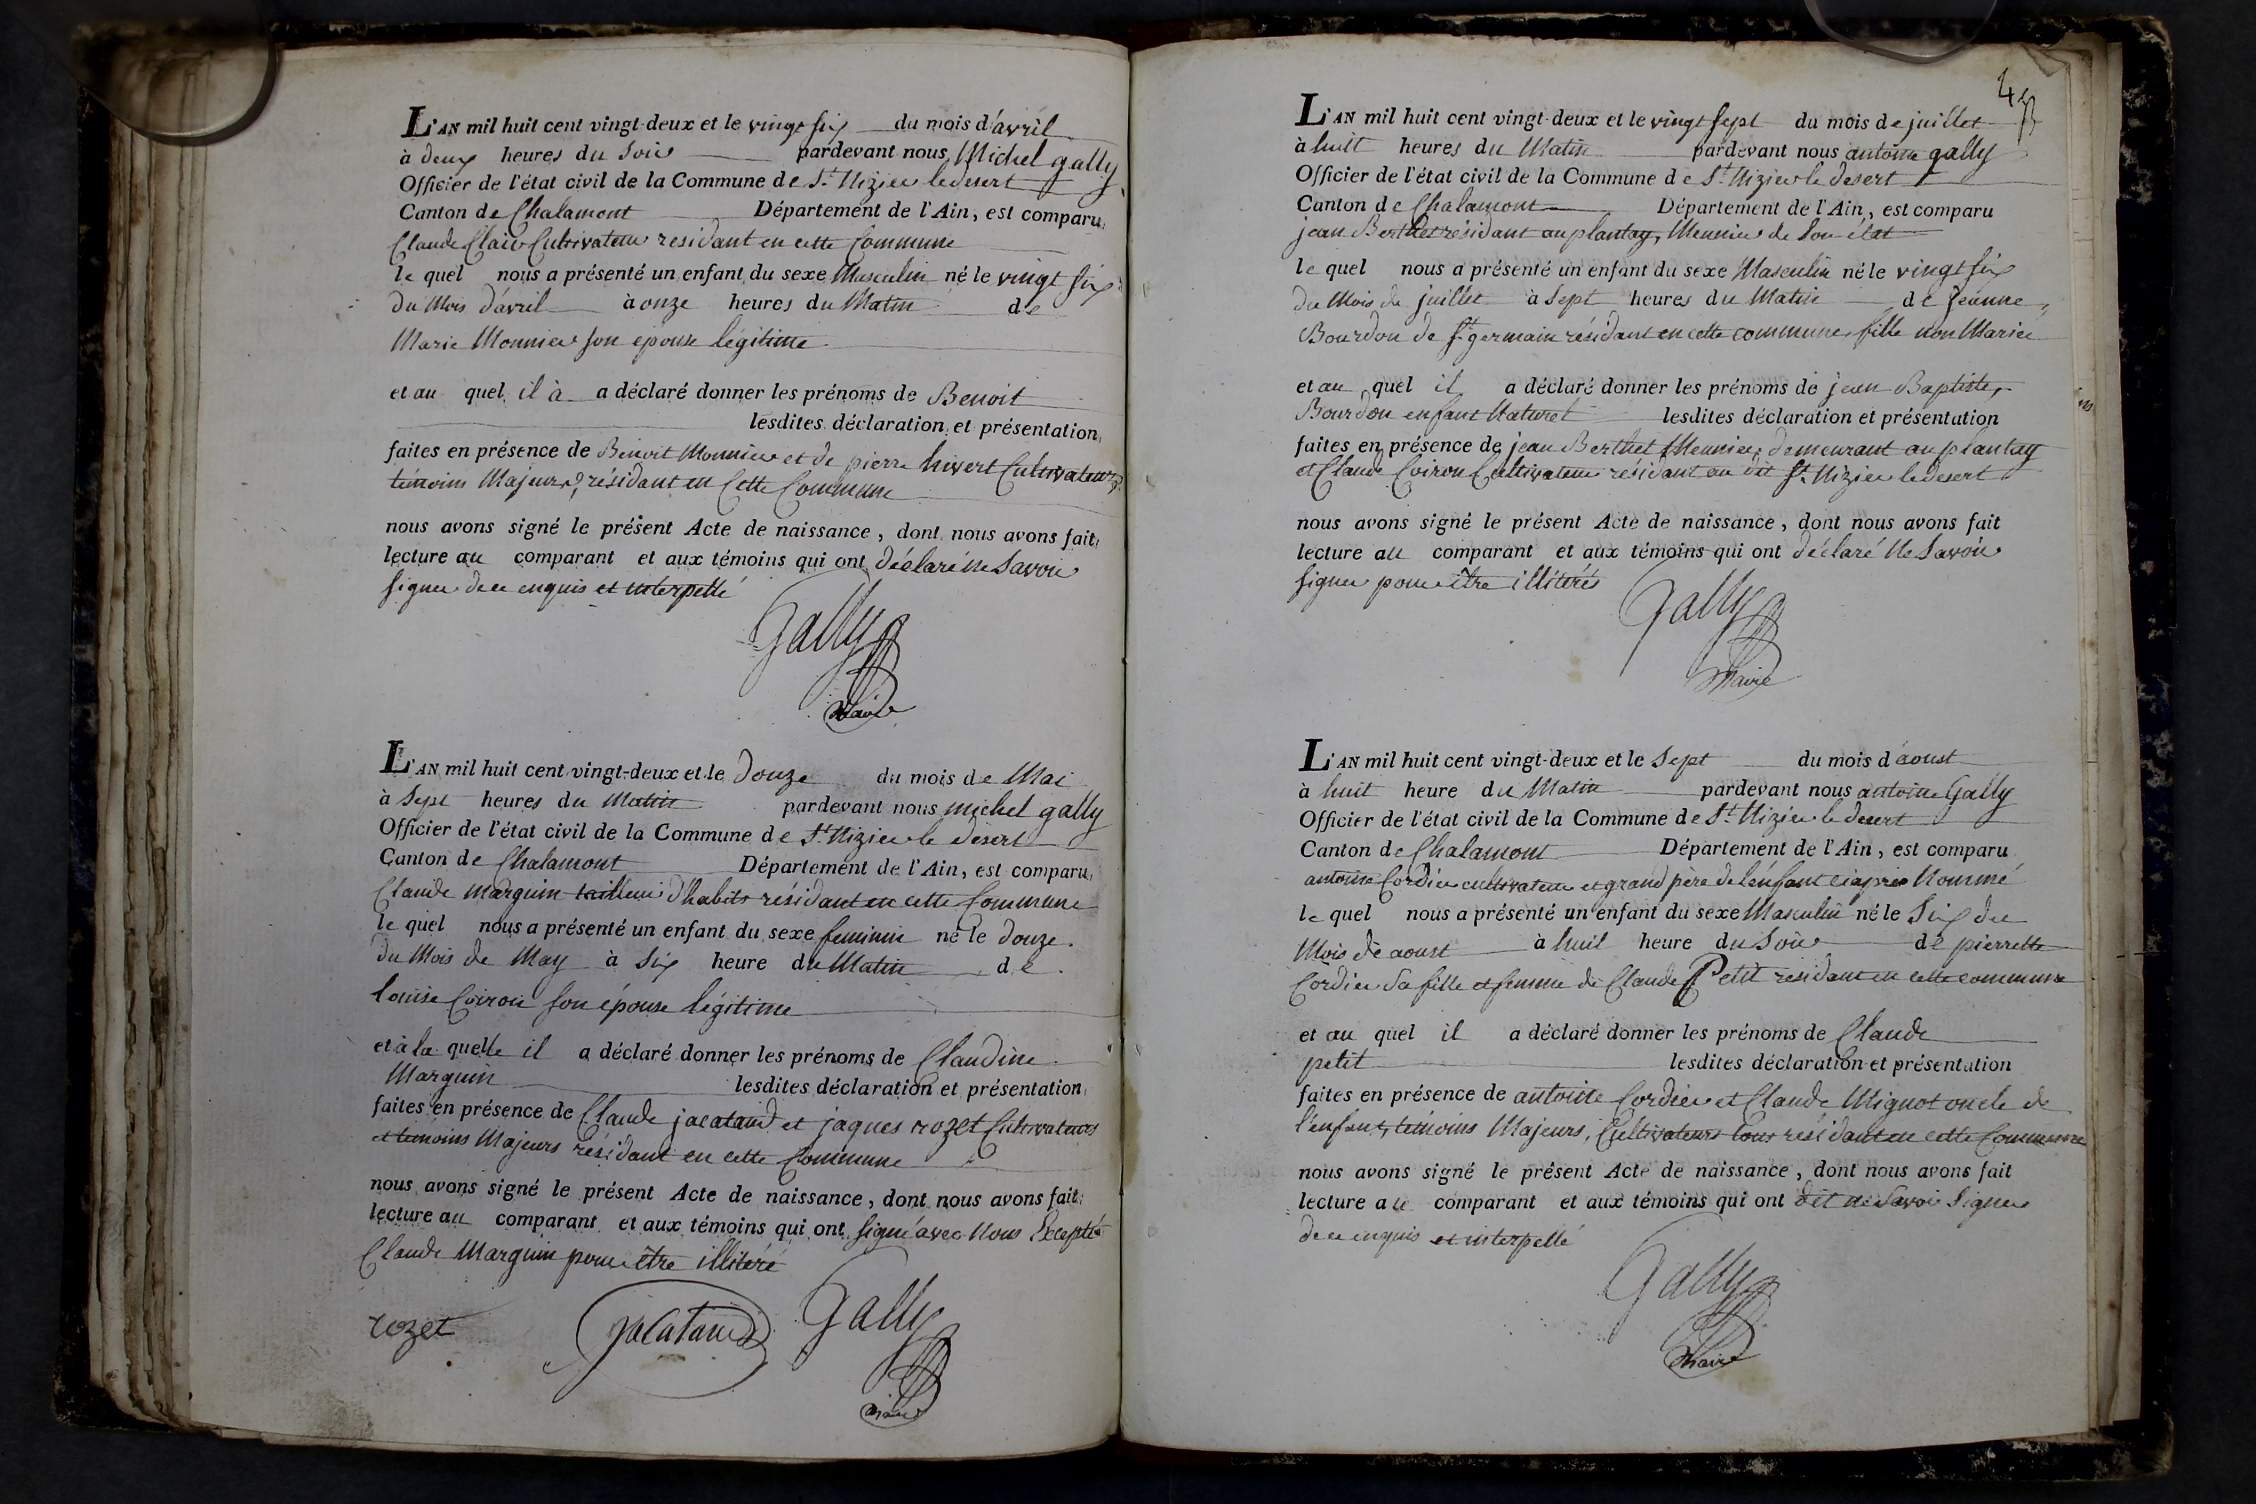 L'AN mil huit cent vingt-deux et le vingt six du mois d'avril
à deux heures du Soir pardevant nous Michel gally
Officier de l'état civil de la Commune de St. Nizier le desert
Canton de Chalamont Département de l'Ain, est comparu
Claude Clair Cultivateur residant en cette Commune
le quel nous a présenté un enfant du sexe Masculin né le vingt six
du Mois d'avril à onze heures du Matin de
Marie Monnier son épouse légitime
et au quel il à a déclaré donner les prénoms de Benoit
lesdites déclaration et présentation
faites en présence de Benoit Monnier et de pierre hivert Cultivateurs
témoins Majeurs, résidant en Cette Commune
nous avons signé le présent Acte de naissance, dont nous avons fait
lecture au comparant et aux témoins qui ont déclaré ne Savoir
signer de ce enquis et interpellé
Gally
Maire
L'AN mil huit cent vingt-deux et le douze du mois de Mai
à Sept heures du Matin pardevant nous michel gally
Officier de l'état civil de la Commune de St. Nizier le desert
Canton de Chalamont Département de l'Ain, est comparu
Claude marguin tailleur d'habits résidant en cette Commune
le quel nous a présenté un enfant du sexe feminin né le douze
du Mois de May à Six heure du Matin de
louise Coiron son épouse légitime
et à la quelle il a déclaré donner les prénoms de Claudine
Marguin lesdites déclaration et présentation
faites en présence de Claude jacataud et jaques rozet Cultivateurs
et témoins Majeurs résidant en cette Commune
nous avons signé le présent Acte de naissance, dont nous avons fait
lecture au comparant et aux témoins qui ont signé avec Nous Excepté
Claude Marguin pour être illitéré
rozet jacataud Gally
Maire
4
L'AN mil huit cent vingt-deux et le vingt sept du mois de juillet
à huit heures du Matin pardevant nous antoine gally
Officier de l'état civil de la Commune de St. Nizier le desert
Canton de Chalamont Département de l'Ain, est comparu
jean Berthet résidant au plantay, Meunier de Son état
le quel nous a présenté un enfant du sexe Masculin né le vingt six
du Mois de juillet à Sept heures du Matin de jeanne
Bourdon de St. germain résidant en cette commune, fille non Mariée
et au quel il a déclaré donner les prénoms de jean Baptiste,
Bourdon enfant Naturel lesdites déclaration et présentation
faites en présence de jean Berthet Meunier, demeurant au plantay
et Claude Coiron Cultivateur résidant au dit St. Nizier le desert
nous avons signé le présent Acte de naissance, dont nous avons fait
lecture au comparant et aux témoins qui ont déclaré Ne Savoir
signer pour être illitérés
Gally
Maire
L'AN mil huit cent vingt-deux et le Sept du mois d'aoust
à huit heure du Matin pardevant nous antoine Gally
Officier de l'état civil de la Commune de St. Nizier le desert
Canton de Chalamont Département de l'Ain, est comparu
antoine Cordier cultivateur et grand père de l'enfant ciaprès Nommé
le quel nous a présenté un enfant du sexe Masculin né le Six du
Mois de aoust à huit heure du Soir de pierrette
Cordier Sa fille et femme de Claude Petit résidant en cette commune
et au quel il a déclaré donner les prénoms de Claude
petit lesdites déclaration et présentation
faites en présence de antoine Cordier et Claude Mignot oncle de
l'enfant, témoins Majeurs, Cultivateurs tous résidant en cette Commune
nous avons signé le présent Acte de naissance, dont nous avons fait
lecture au comparant et aux témoins qui ont dit ne Savoir Signer
de ce enquis et interpellé
Gally
Maire